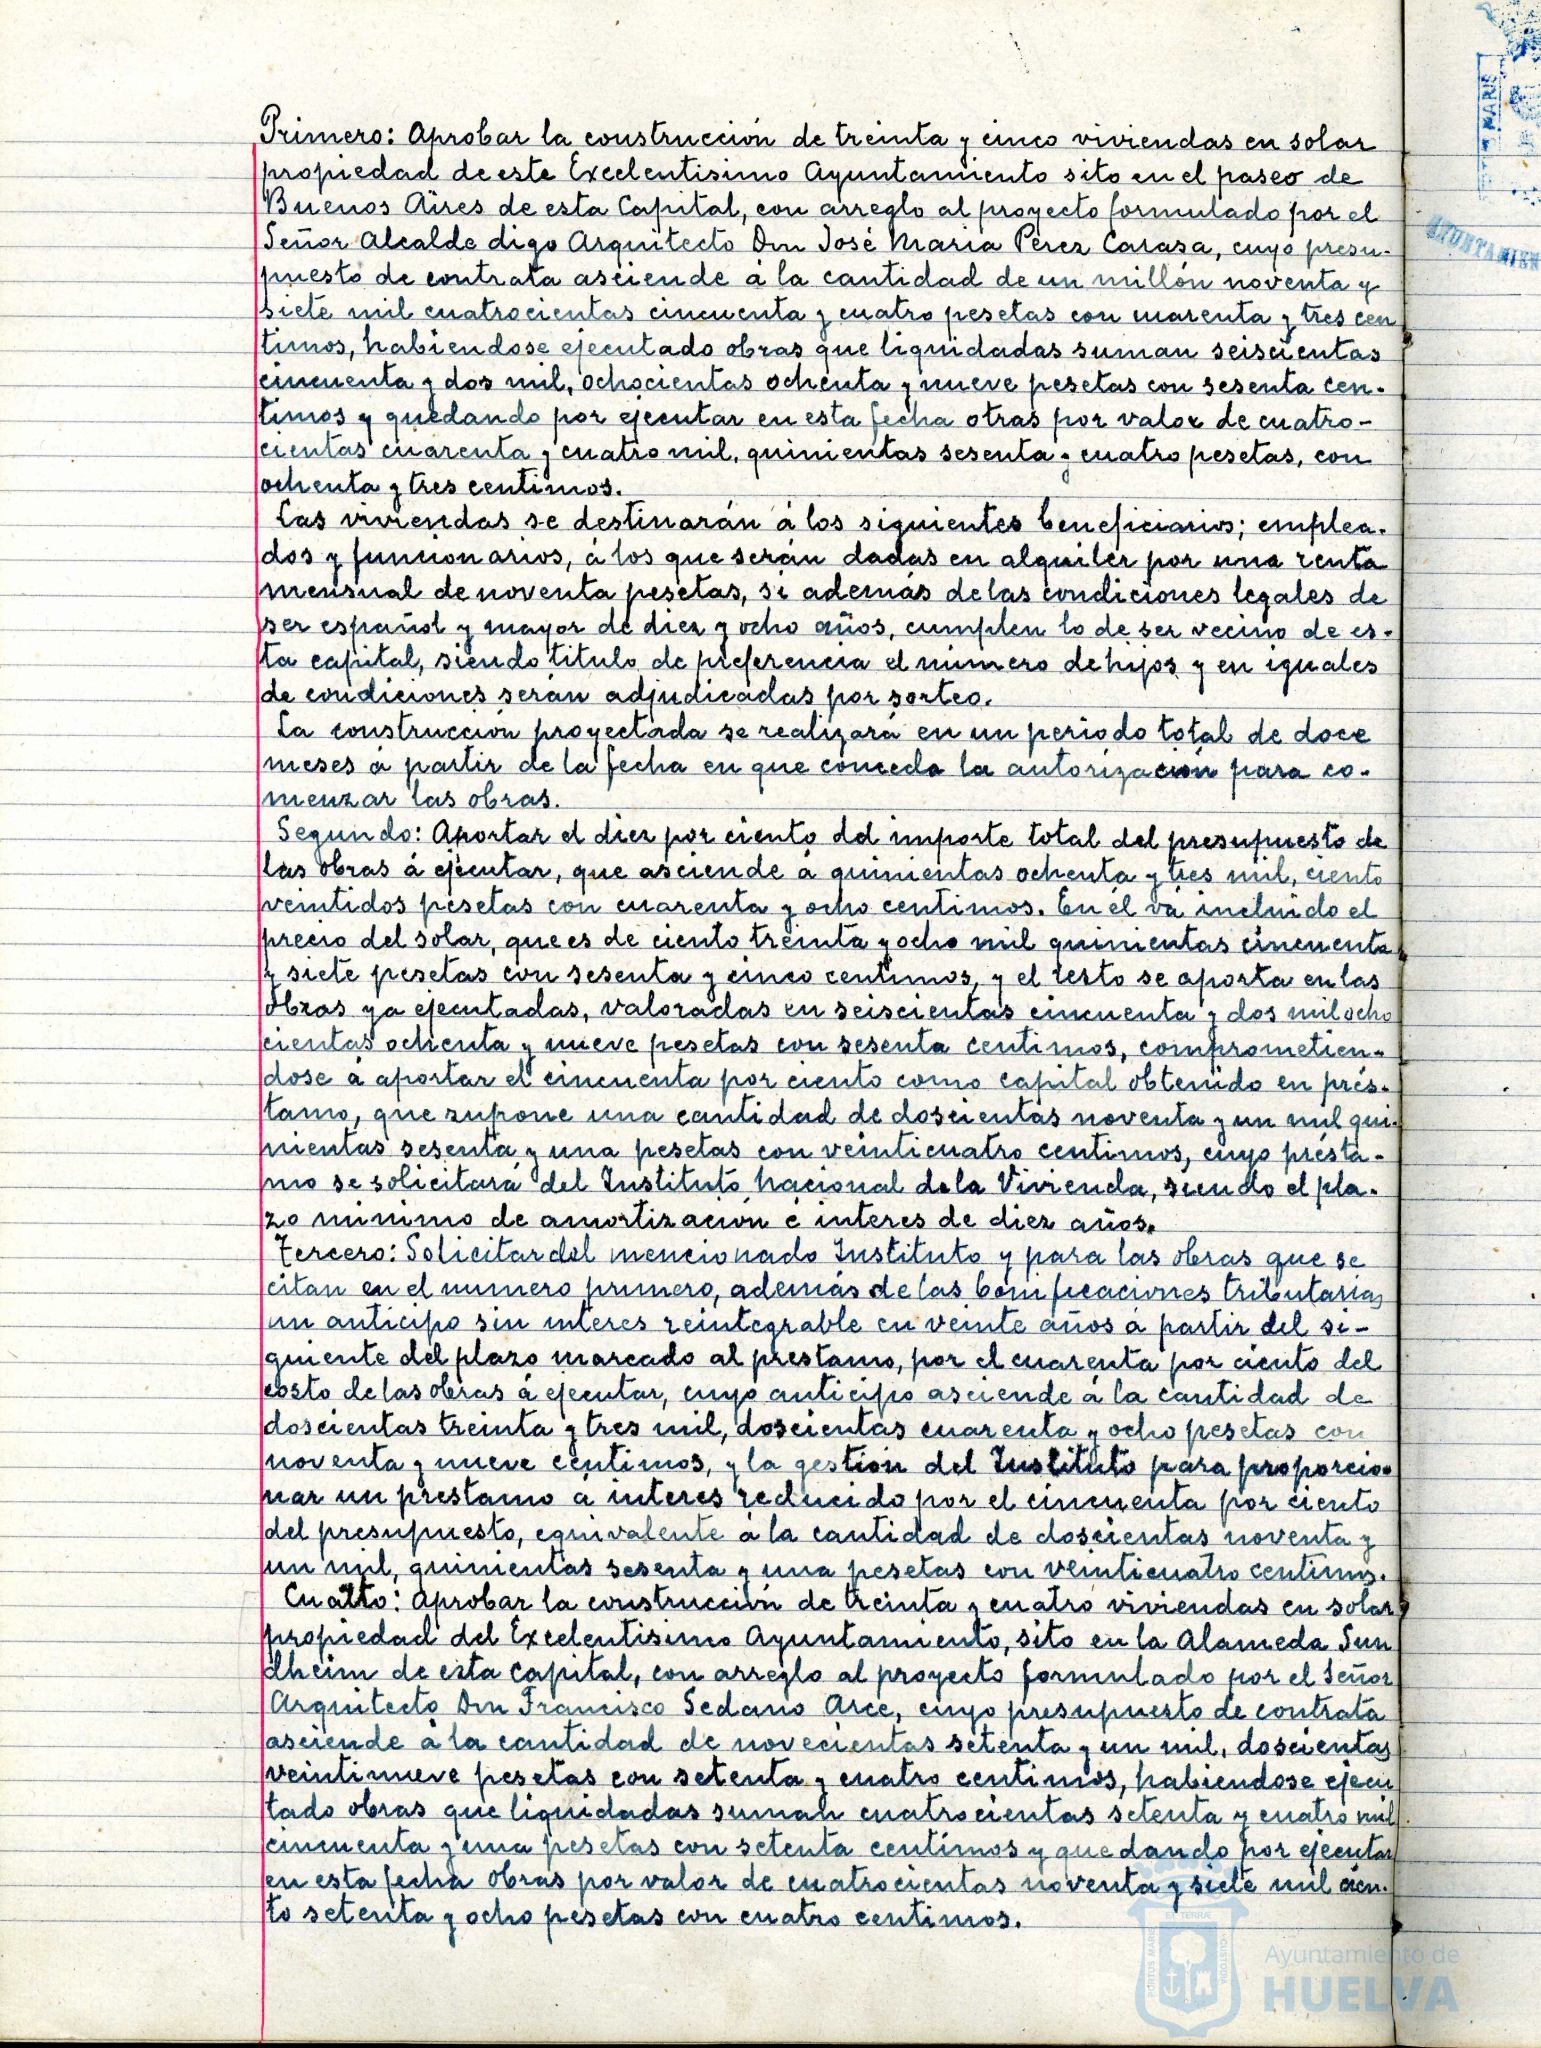 Primero: Aprobar la construcción de treinta y cinco viviendas en solar
propiedad de este Excelentisimo Ayuntamiento sito en el paseo de
Buenos Aires de esta Capital, con arreglo al proyecto formulado por el
Señor Alcalde digo Arquitecto Don José Maria Perez Carasa, cuyo presu-
puesto de contrata asciende á la cantidad de un millón noventa y
siete mil cuatrocientas cincuenta y cuatro pesetas con cuarenta y tres cen
timos, habiendose ejecutado obras que liquidadas suman seiscientas
cincuenta y dos mil, ochocientas ochenta y nueve pesetas con sesenta cen-
timos y quedando por ejecutar en esta fecha otras por valor de cuatro-
cientas cuarenta y cuatro mil, quinientas sesenta y cuatro pesetas, con
ochenta y tres centimos.
Las viviendas se destinarán á los siguientes beneficiarios; emplea-
dos y funcionarios, á los que serán dadas en alquiler por una renta
mensual de noventa pesetas, si además de las condiciones legales de
ser español y mayor de diez y ocho años, cumplen lo de ser vecino de es-
ta capital, siendo titulo de preferencia el numero de hijos y en iguales
de condiciones serán adjudicadas por sorteo.
La construcción proyectada se realizará en un periodo total de doce
meses á partir de la fecha en que conceda la autorización para co-
menzar las obras.
Segundo: Aportar el diez por ciento del importe total del presupuesto de
las obras á ejecutar, que asciende á quinientas ochenta y tres mil, ciento
veintidos pesetas con cuarenta y ocho centimos. En él va incluido el
precio del solar, que es de ciento treinta y ocho mil quinientas cincuenta
y siete pesetas con sesenta y cinco centimos, y el resto se aporta en las
obras ya ejecutadas, valoradas en seiscientas cincuenta y dos mil ocho
cientas ochenta y nueve pesetas con sesenta centimos, comprometien-
dose á aportar el cincuenta por ciento como capital obtenido en prés-
tamo, que supone una cantidad de doscientas noventa y un mil qui-
nientas sesenta y una pesetas con veinticuatro centimos, cuyo présta-
mo se solicitará del Instituto nacional de la Vivienda, siendo el pla-
zo minimo de amortización é interes de diez años.
Tercero: Solicitar del mencionado Instituto y para las obras que se
citan en el numero primero, además de las bonificaciones tributarias
un anticipo sin interes reintegrable en veinte años á partir del si-
guiente del plazo marcado al prestamo, por el cuarenta por ciento del
costo de las obras á ejecutar, cuyo anticipo asciende á la cantidad de
doscientas treinta y tres mil, doscientas cuarenta y ocho pesetas con
noventa y nueve centimos, y la gestión del Instituto para proporcio-
nar un prestamo a interes reducido por el cincuenta por ciento
del presupuesto, equivalente á la cantidad de doscientas noventa y
un mil, quinientas sesenta y una pesetas con veinticuatro centimos.
Cuatto: Aprobar la construcción de treinta y cuatro viviendas en solar
propiedad del Excelentisimo Ayuntamiento, sito en la Alameda Sun
dheim de esta capital, con arreglo al proyecto formulado por el Señor
Arquitecto Don Francisco Sedano Arce, cuyo presupuesto de contrata
asciende á la cantidad de novecientas setenta y un mil, doscientas
veintinueve pesetas con setenta y cuatro centimos, habiendose ejecu
tado obras que liquidadas suman cuatrocientas setenta y cuatro mil
cincuenta y una pesetas con setenta centimos y quedando por ejecutar
en esta fecha obras por valor de cuatrocientas noventa y siete mil cien-
to setenta y ocho pesetas con cuatro centimos.
Ayuntamiento de
HUELVA